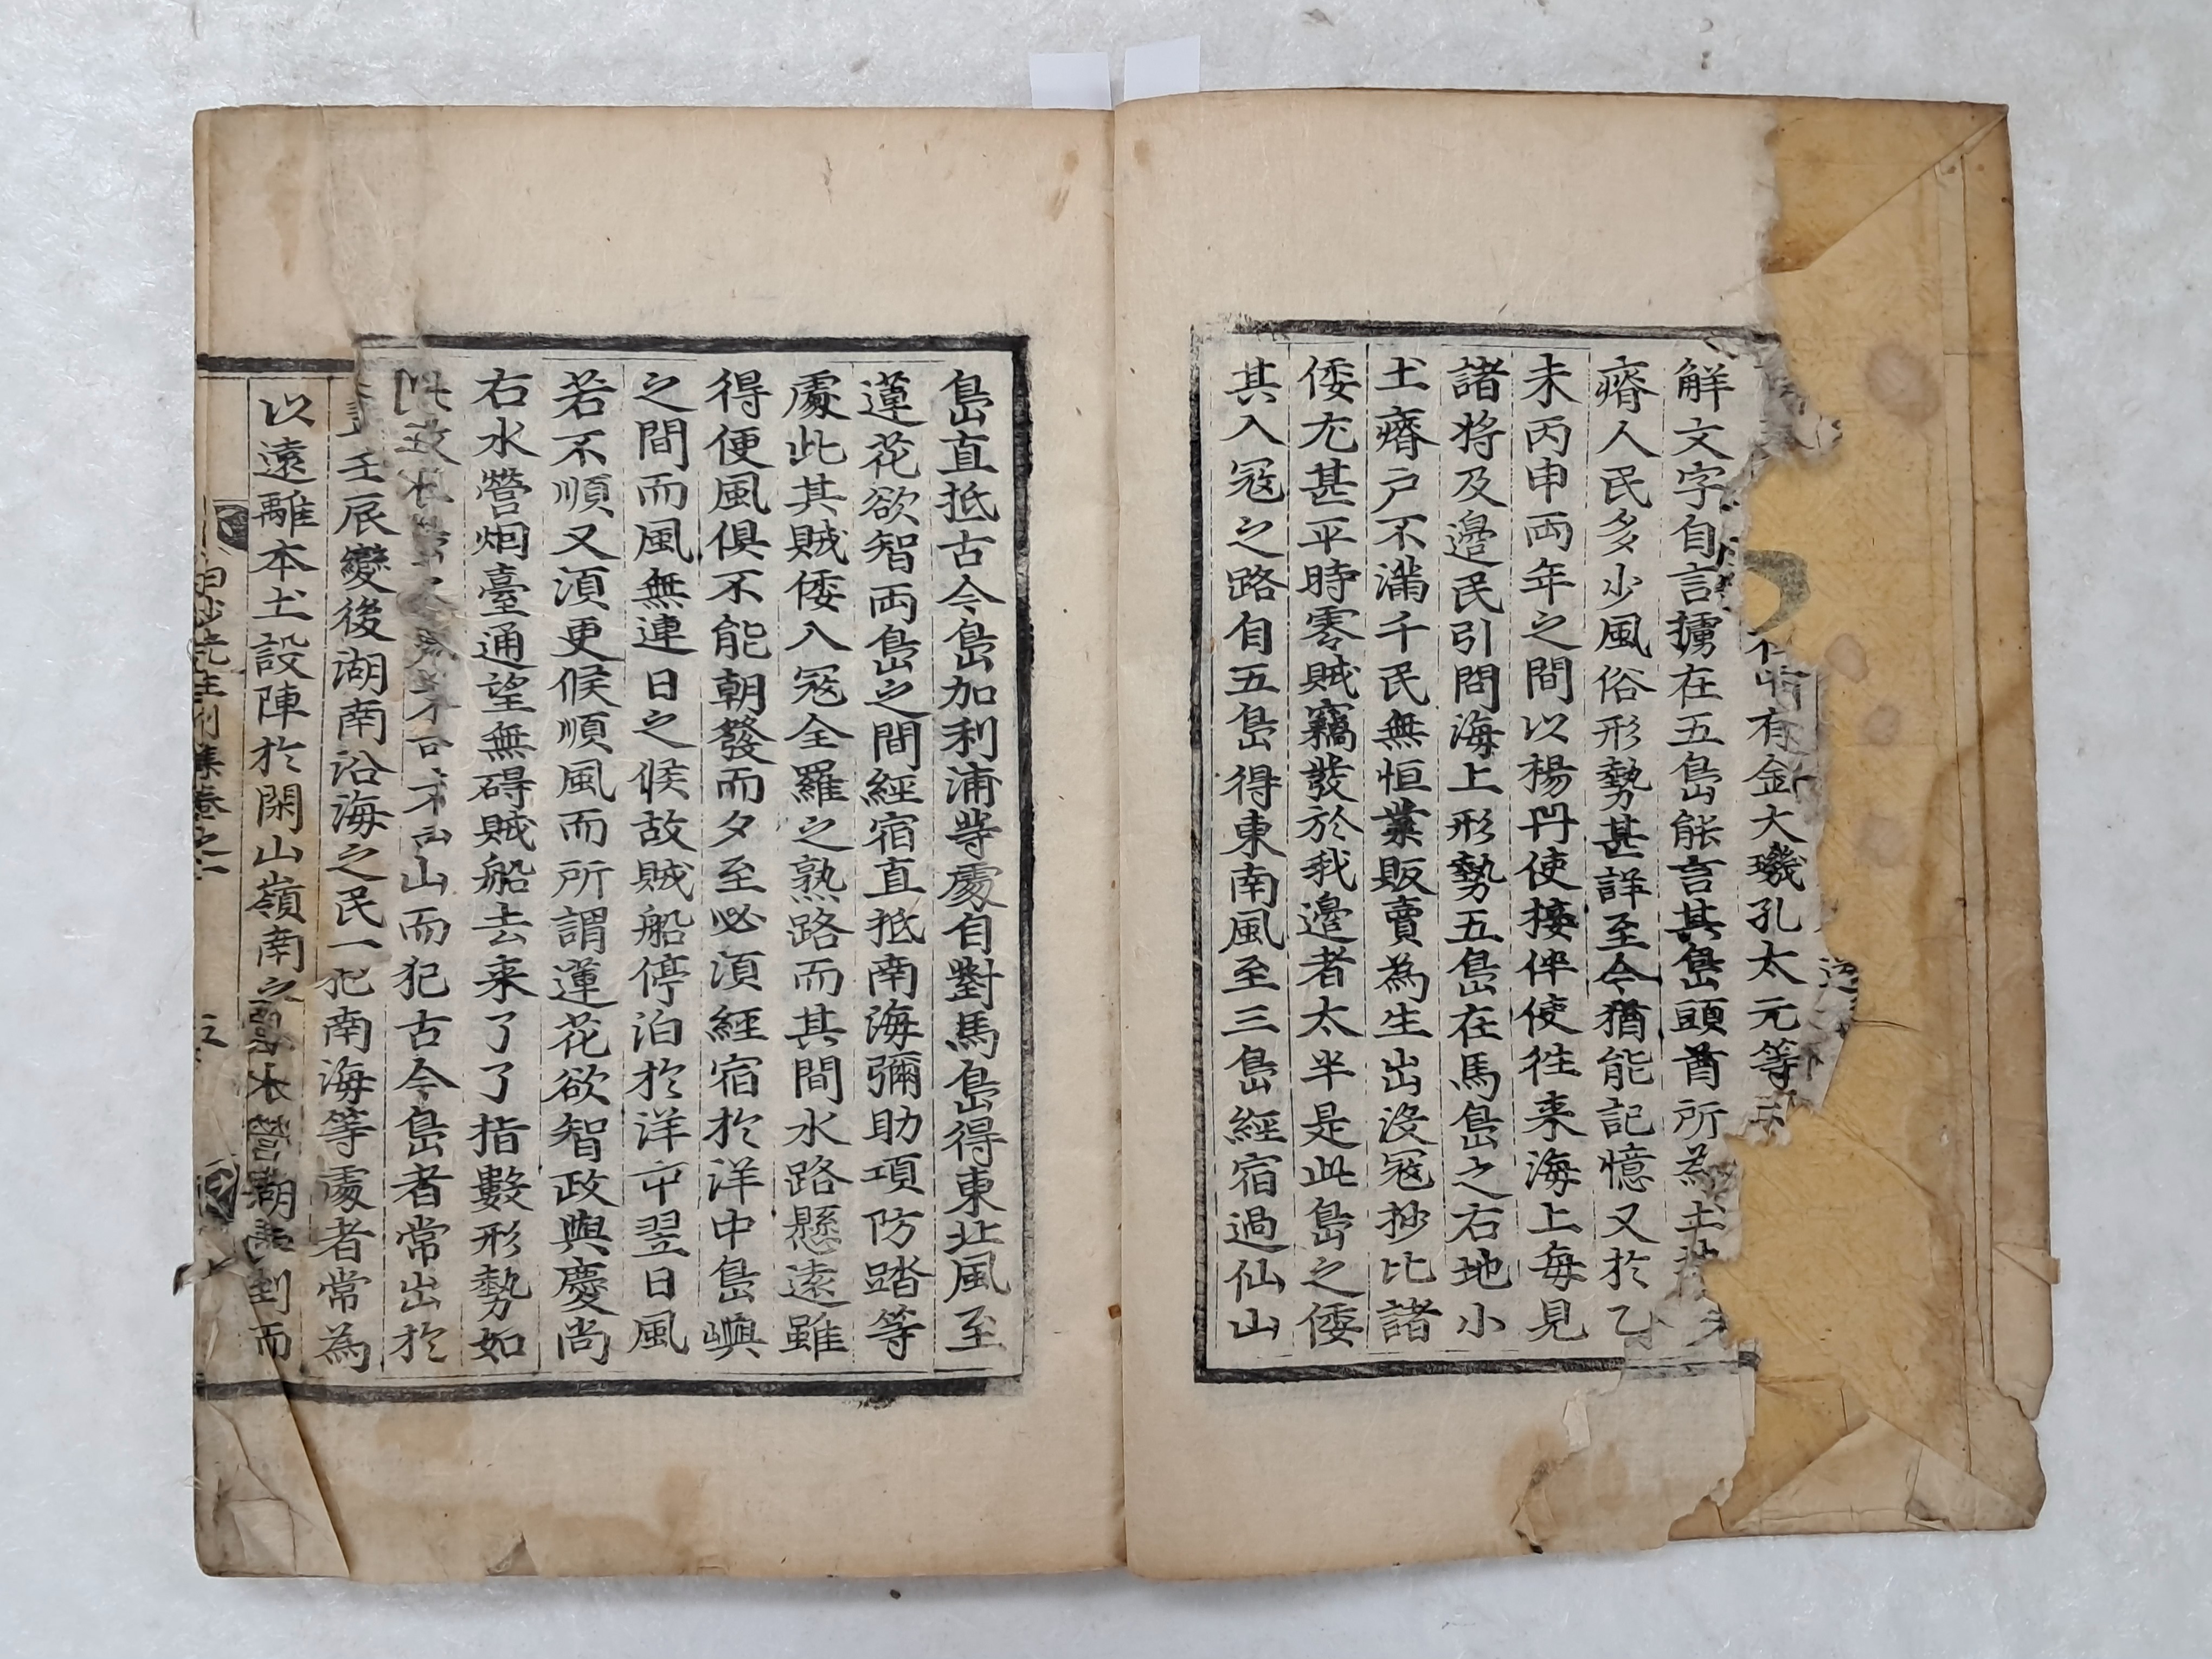 有金大璣孔太元等
解文字自言擄在五島能言其島頭酋所為土
瘠人民多少風俗形勢甚詳至今猶能記憶又於乙
未丙申両年之間以楊冊使接伴使徃来海上毎見
諸将及邉民引問海上形勢五島在馬島之右地小
土瘠戸不滿千民無恒業販賣為生出沒冦抄比諸
倭尤甚平時零賊竊發於我邉者太半是此島之倭
其入冦之路自五島得東南風至三島經宿過仙山
島直抵古今島加利浦等處自對馬島得東北風至
蓮花欲智両島之間經宿直抵南海彌助項防踏等
處此其賊倭入冦全羅之熟路而其間水路懸遠雖
得便風俱不能朝發而夕至必湏經宿於洋中島嶼
之間而風無連日之候故賊船停泊於洋中翌日風
若不順又湏更候順風而所謂蓮花欲智政與慶尚
右水營烟臺通望無碍賊船去来了了指數形勢如
此政山而犯古今島者常出於
壬辰變後湖南沿海之民一犯南海等處者常為
以遠離本土設陣於閑山嶺南之右水營湖到而
白沙先生別集卷之二